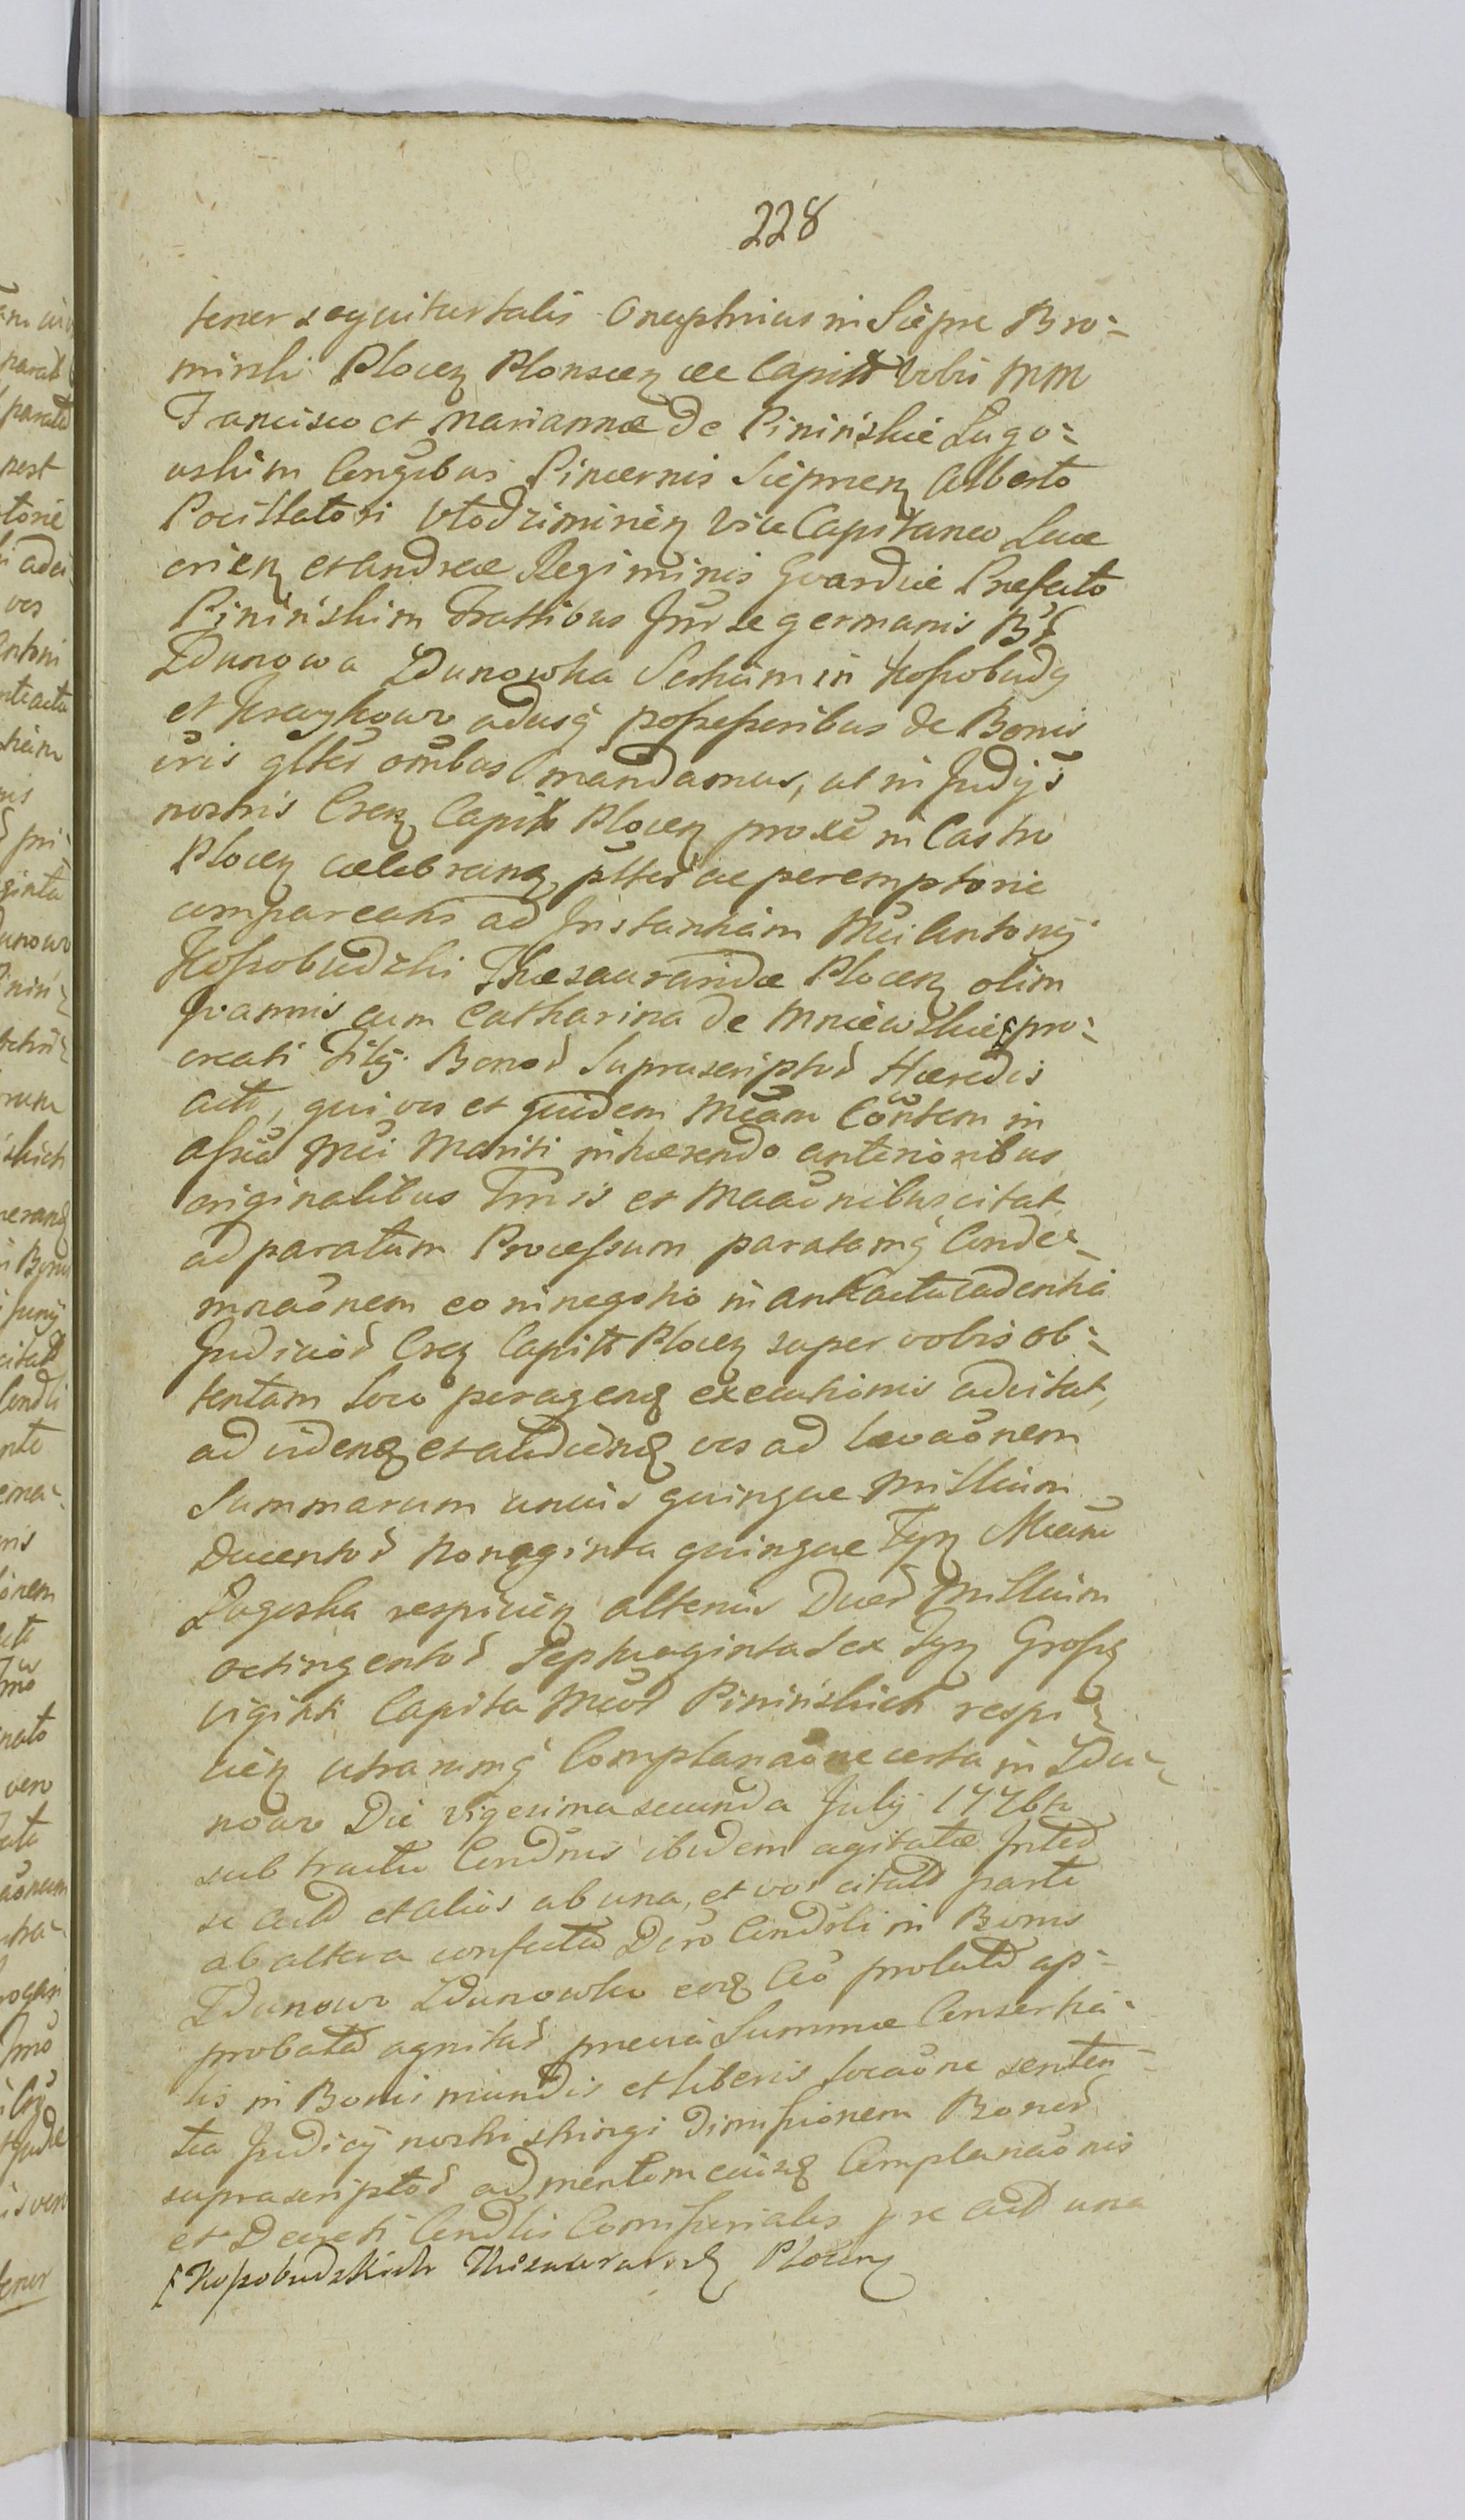 228
tener sequitur talis Onuphrius in Siepre Bro-
minski Plocen Plonscen &c Capitt Vobis MM
Francisco et Mariannæ de Pinińskie Zago-
uskim Conjgibus Pincernis Sieprcen Alberto
Pocillatori Vłodziminień Vice Capitaneo
crien et Andreæ Regiminis Gvardiæ Præfecto
Pinińskim Frattibus Inr se germanis
Zdunowa Zdunowka Serkiim in Kossobudy
et adusq possessoribus de Bonis
vris glter oɱibus mandamus, ut in Judijs
nostris Cren Capitt Plocen proxe in Castro
Plocen celebrand, pltter ac peremptorie
compareatis ad Instantiam Mci Antonij
Kossobudzki Thesauraridæ Plocen olim
Joannis cum Catharina de Mniewskie pro-
creati Filij Bonor Suprascriptor Hæredis
acti, qui vos et quidem Mcam Contem in
assia Mci Mariti inhærendo anterioribus
originalibus Tmis et Maaonibus, citat,
ad paratum Processum paratamq Conde-
mnaonem eo in negotio in anteacta cadentia
Judicior Cren Capitt Plocen super vobis ob-
tentam loco peragend executionis adcitat,
ad vidend et audiend vos ad levaonem
Summarum unius quinque Millium
Ducentor Nonaginta quinque Fpn Mcam
Zagoska respicien alterius Duor Millium
octingentor Septuaginta sex Fpn Grossy
viginti Capita Mcor Pinińskich respi-
cien utramq Complanaone certa in Zdu-
nowo Die vigesima secunda Julij 177
sub tractu Condnis ibidem agitatæ Inted
se actd et alios ab una, et vos citatd parte
ab altera confectd Dero Condsli in Bonis
Zdunowo Zdunowko eod Cco prolatd ap-
probatd agnitas prævia Summæ Conserka-
lis in Bonis mundis et liberis locaone senten-
tia Judicij nostri stringi Dimissionem Bonor
suprascriptor ad mentem ejusd Complanaonis
et Decreti Condlis Comissorialis præ actd una
Kossobudzkich Plocen